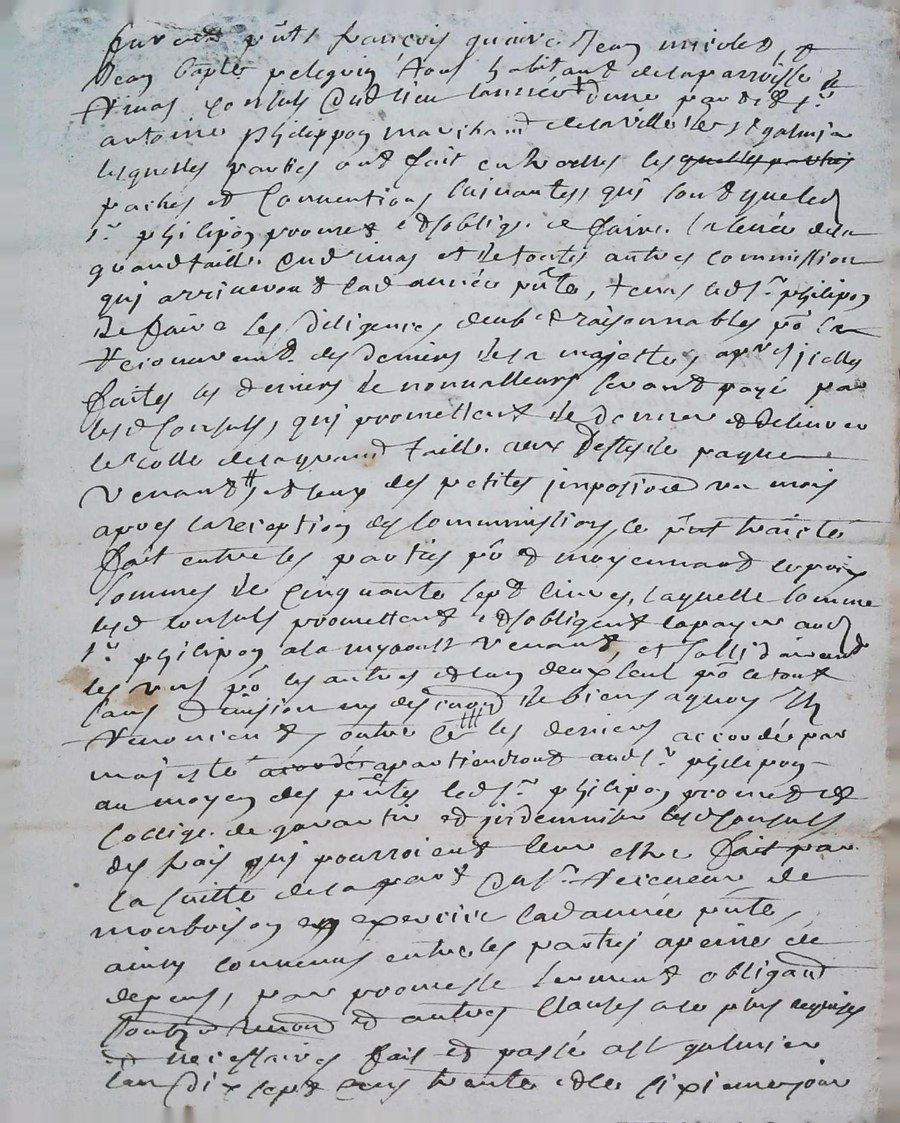 furent pnts françois jean nicolas
Jean bapte pelequin tous habitant de la parroisse
consuls dud lieu lannée dune part et sr
antoine philippon marchand de la ville de st galmier
lesquelles parties ont fait entre elles les quelles parties
paches et conventions suivantes, qui sont que led
sr philipon promet et soblige de faire la levée de la
grand taille et de toutes autres commission
qui arriveront lad année pnte, tenus led sr philipon
de faire les diligences deube et raisonnables po le
recouvrement des deniers de sa majesté, apres jcelles
faites les deniers de nonvalleurs seront payé par
lesd consuls, qui promettent de donner et delivrer
le rolle de la grand taille aux festes de paques
venant, et ceux des petites jmposions un mois
apres la reception des commissions, le pnt traicté
fait entre les parties po et moyennant le prix
somme de cinquante sept livres, laquelle somme
lesd consuls promettent et sobligent a payer aud
sr philipon a la myaoust venant, et sollidairement
les uns po les autres et lun deux seul po le tout
sans division ny de biens a quoy ils
renoncient, outre ce les deniers accordés par
majesté acordés apartiendront aud sr philipon
au moyen des pntes led sr philipon promet et
soblige de garantir et jndemniser lesd consuls
des frais qui pourroient leur estre fait par
la suitte de la part du sr receveur de
monbrison en exercice lad année pnte,
ainsy convenus entre les parties a peine de
depens, par promesse serment obligaon
soubz renon et autres clauses a ce plus requises
et necessaires fait et passé a st galmier
lan dix sept cens trente et le sixieme jour